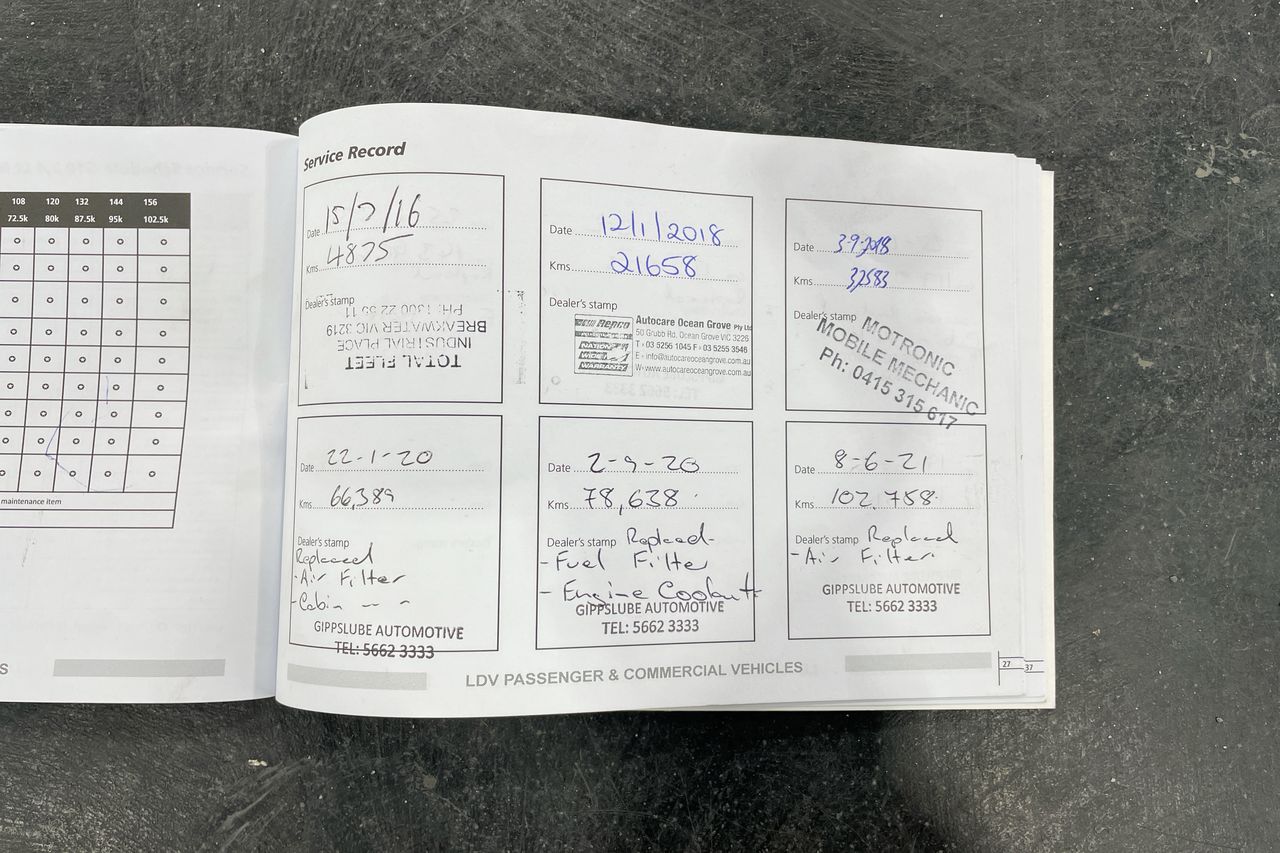 108 120 132 144 156
72.5k 80k 87.5k 95k 102.5k
maintenance item
S
Service Record
Date 15/7/16
Kms 4875
Dealer's stamp
TOTAL FLEET
INDUSTRIAL PLACE
BREAKWATER VIC 3219
Date 12/1/2018
Kms 21658
Dealer's stamp
Repco
NATION
WIDE
WARRANTY
Autocare Ocean Grove Pty Ltd
50 Grubb Rd, Ocean Grove VIC 3226
T • 03 5256 1045 F • 03 5255 3546
E • info@autocareoceangrove.com.au
W • www.autocareoceangrove.com.au
Date 3-9-2018
Kms 32583
Dealer's stamp
MOTRONIC
MOBILE MECHANIC
Ph: 0415 315 617
Date 22-1-20
Kms 66,389
Dealer's stamp
Replaced
- Air Filter
- Cabin
GIPPSLUBE AUTOMOTIVE
TEL: 5662 3333
Date 2-9-20
Kms 78,638
Dealer's stamp Replaced
- Fuel Filter
- Engine Coolant
GIPPSLUBE AUTOMOTIVE
TEL: 5662 3333
Date 8-6-21
Kms 102,758
Dealer's stamp Replaced
- Air Filter
GIPPSLUBE AUTOMOTIVE
TEL: 5662 3333
LDV PASSENGER & COMMERCIAL VEHICLES
27
37